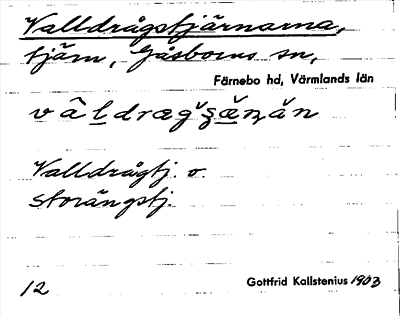 Valldrågstjärnarna,
tjärn, Gåsborns sn,
Färnebo hd, Värmlands län
Valldrågtj. o.
storängstj.
12 Gottfrid Kallstenius 1903